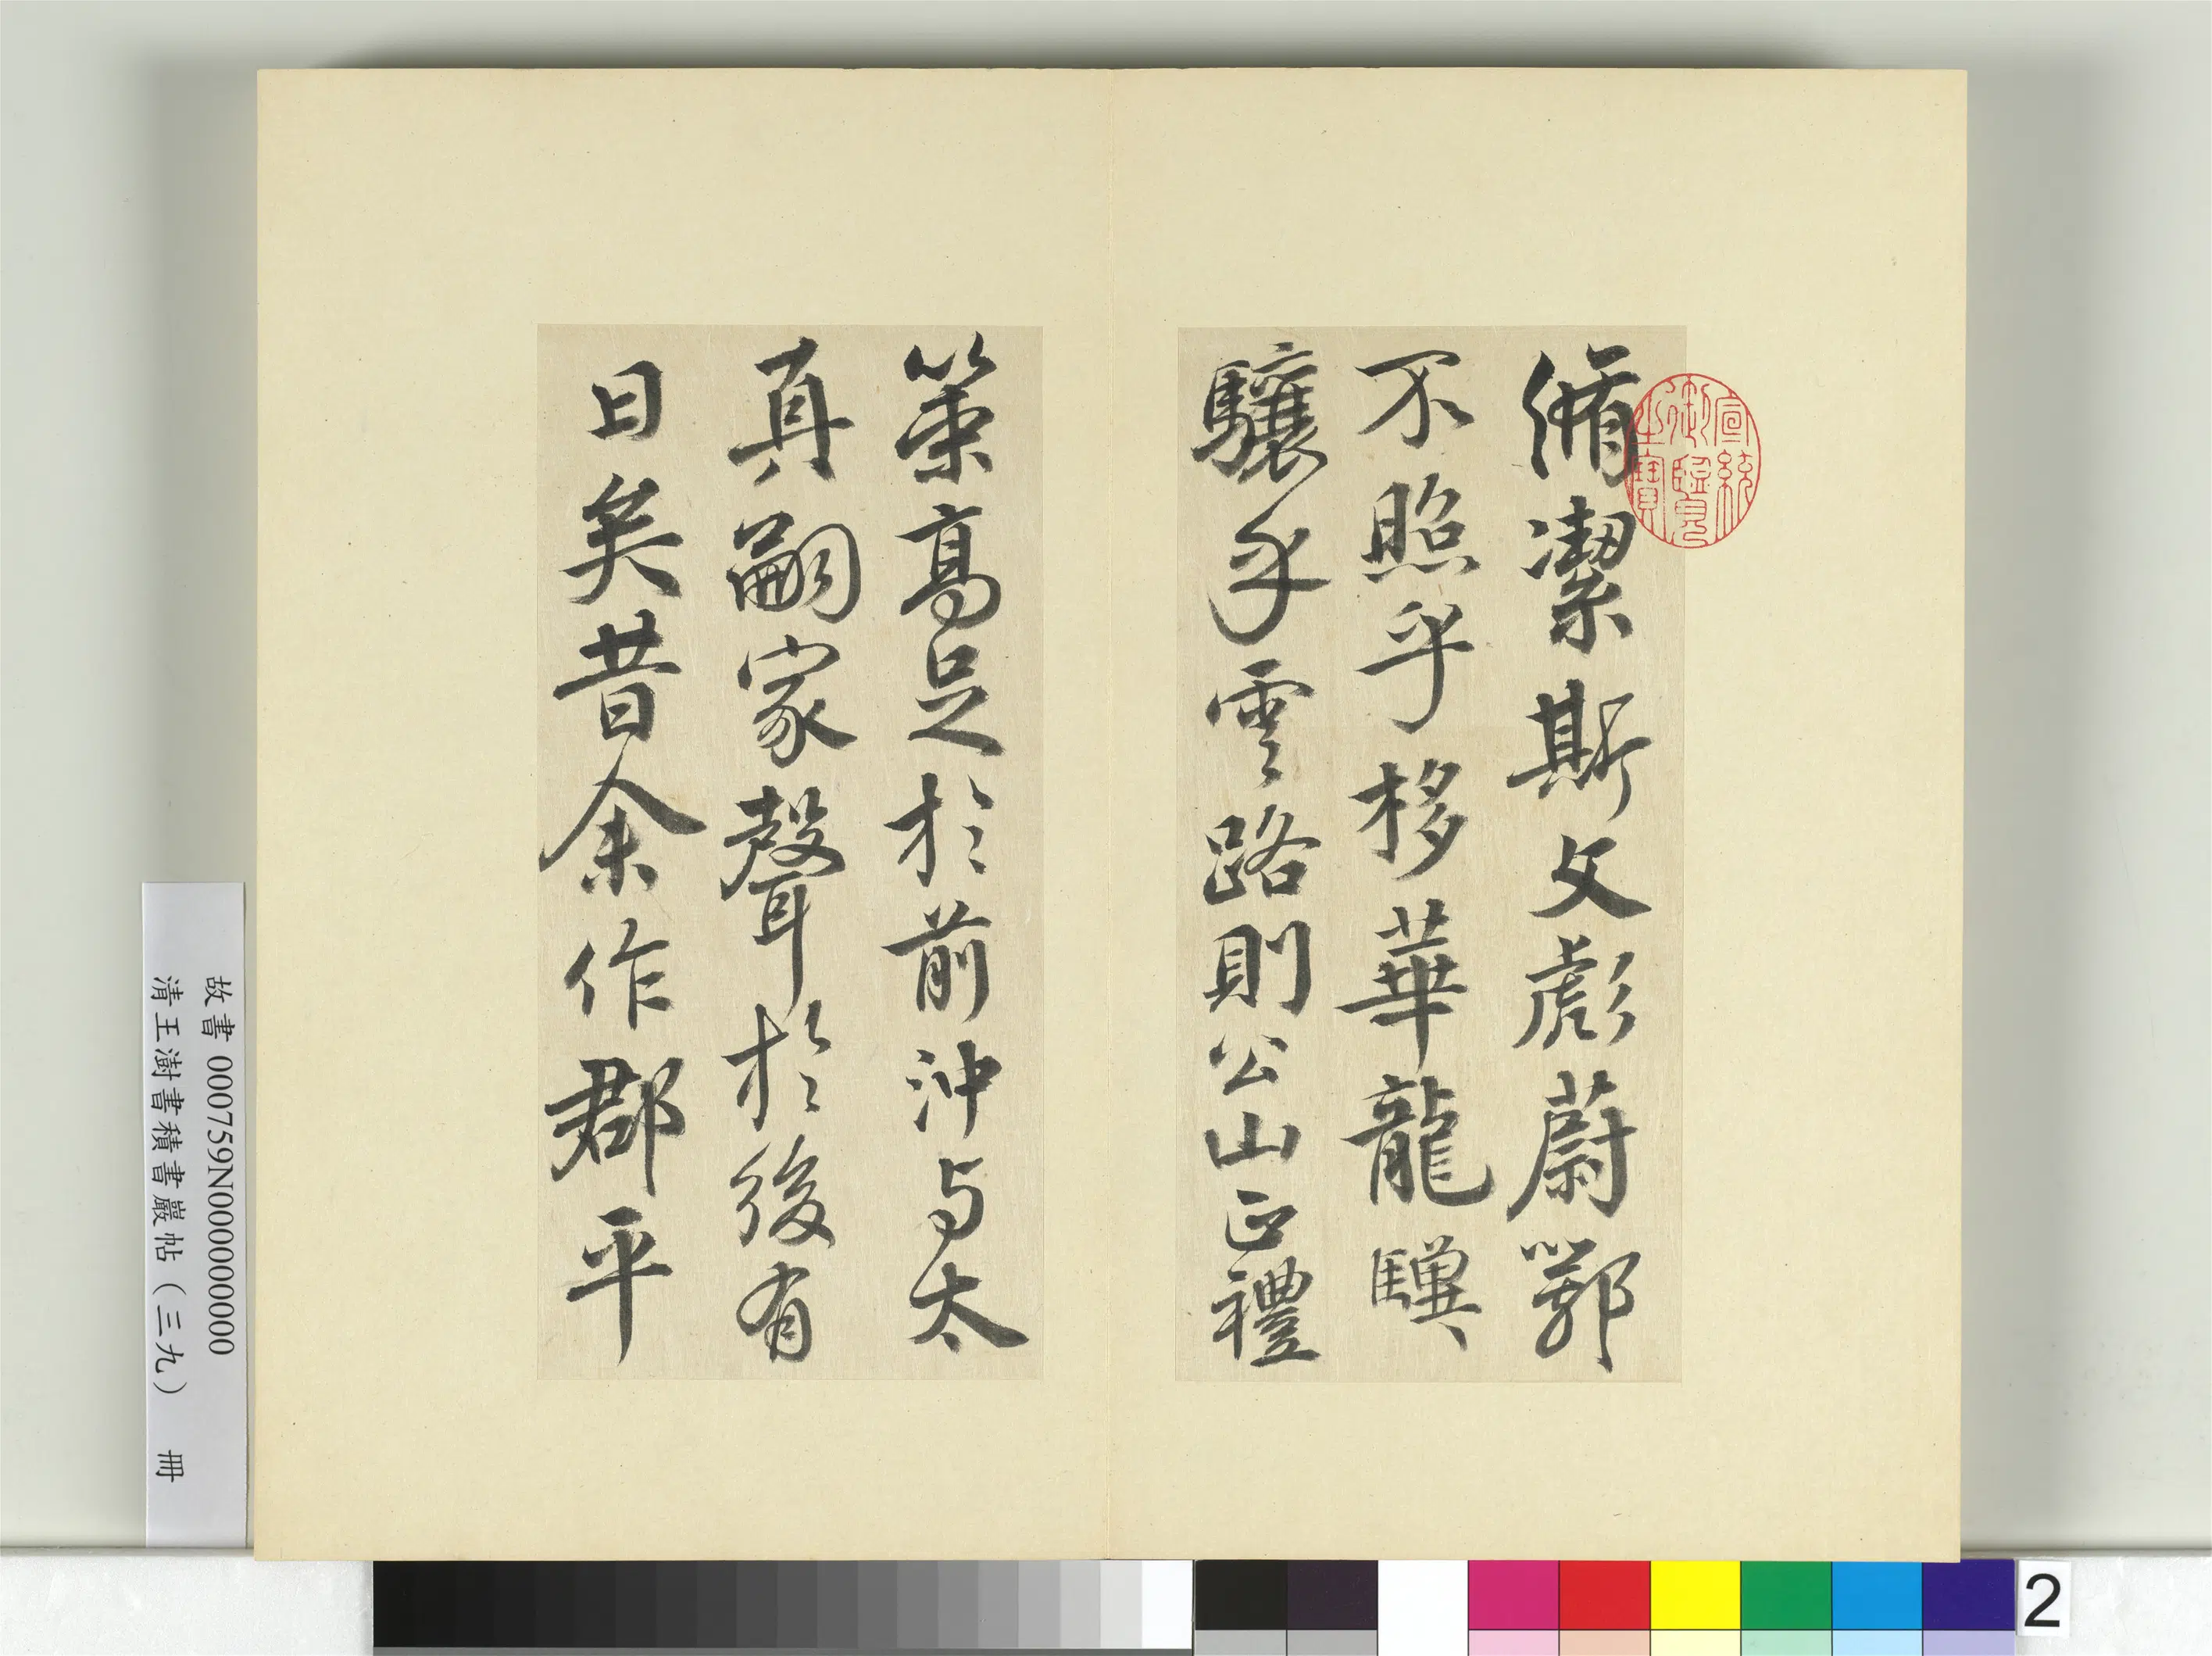 脩潔斯文彪蔚鄂
不照乎移華龍驥
驤乎雲路則公山正禮
策髙足於前沖与太
真嗣家聲於後有
日矣昔余作郡平
宣統御覽之寶
故書 000759N000000000
清王澍書積書巖帖（三九） 冊
2